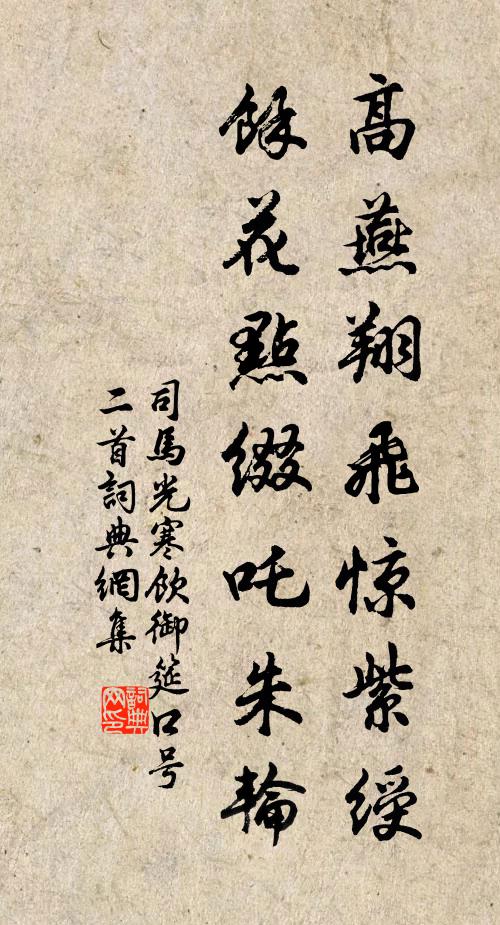 高燕翔飛惊紫綬
餘花點綴吒朱輪
司馬光寒飲御筵口号
二首詞典網集
詞典网印